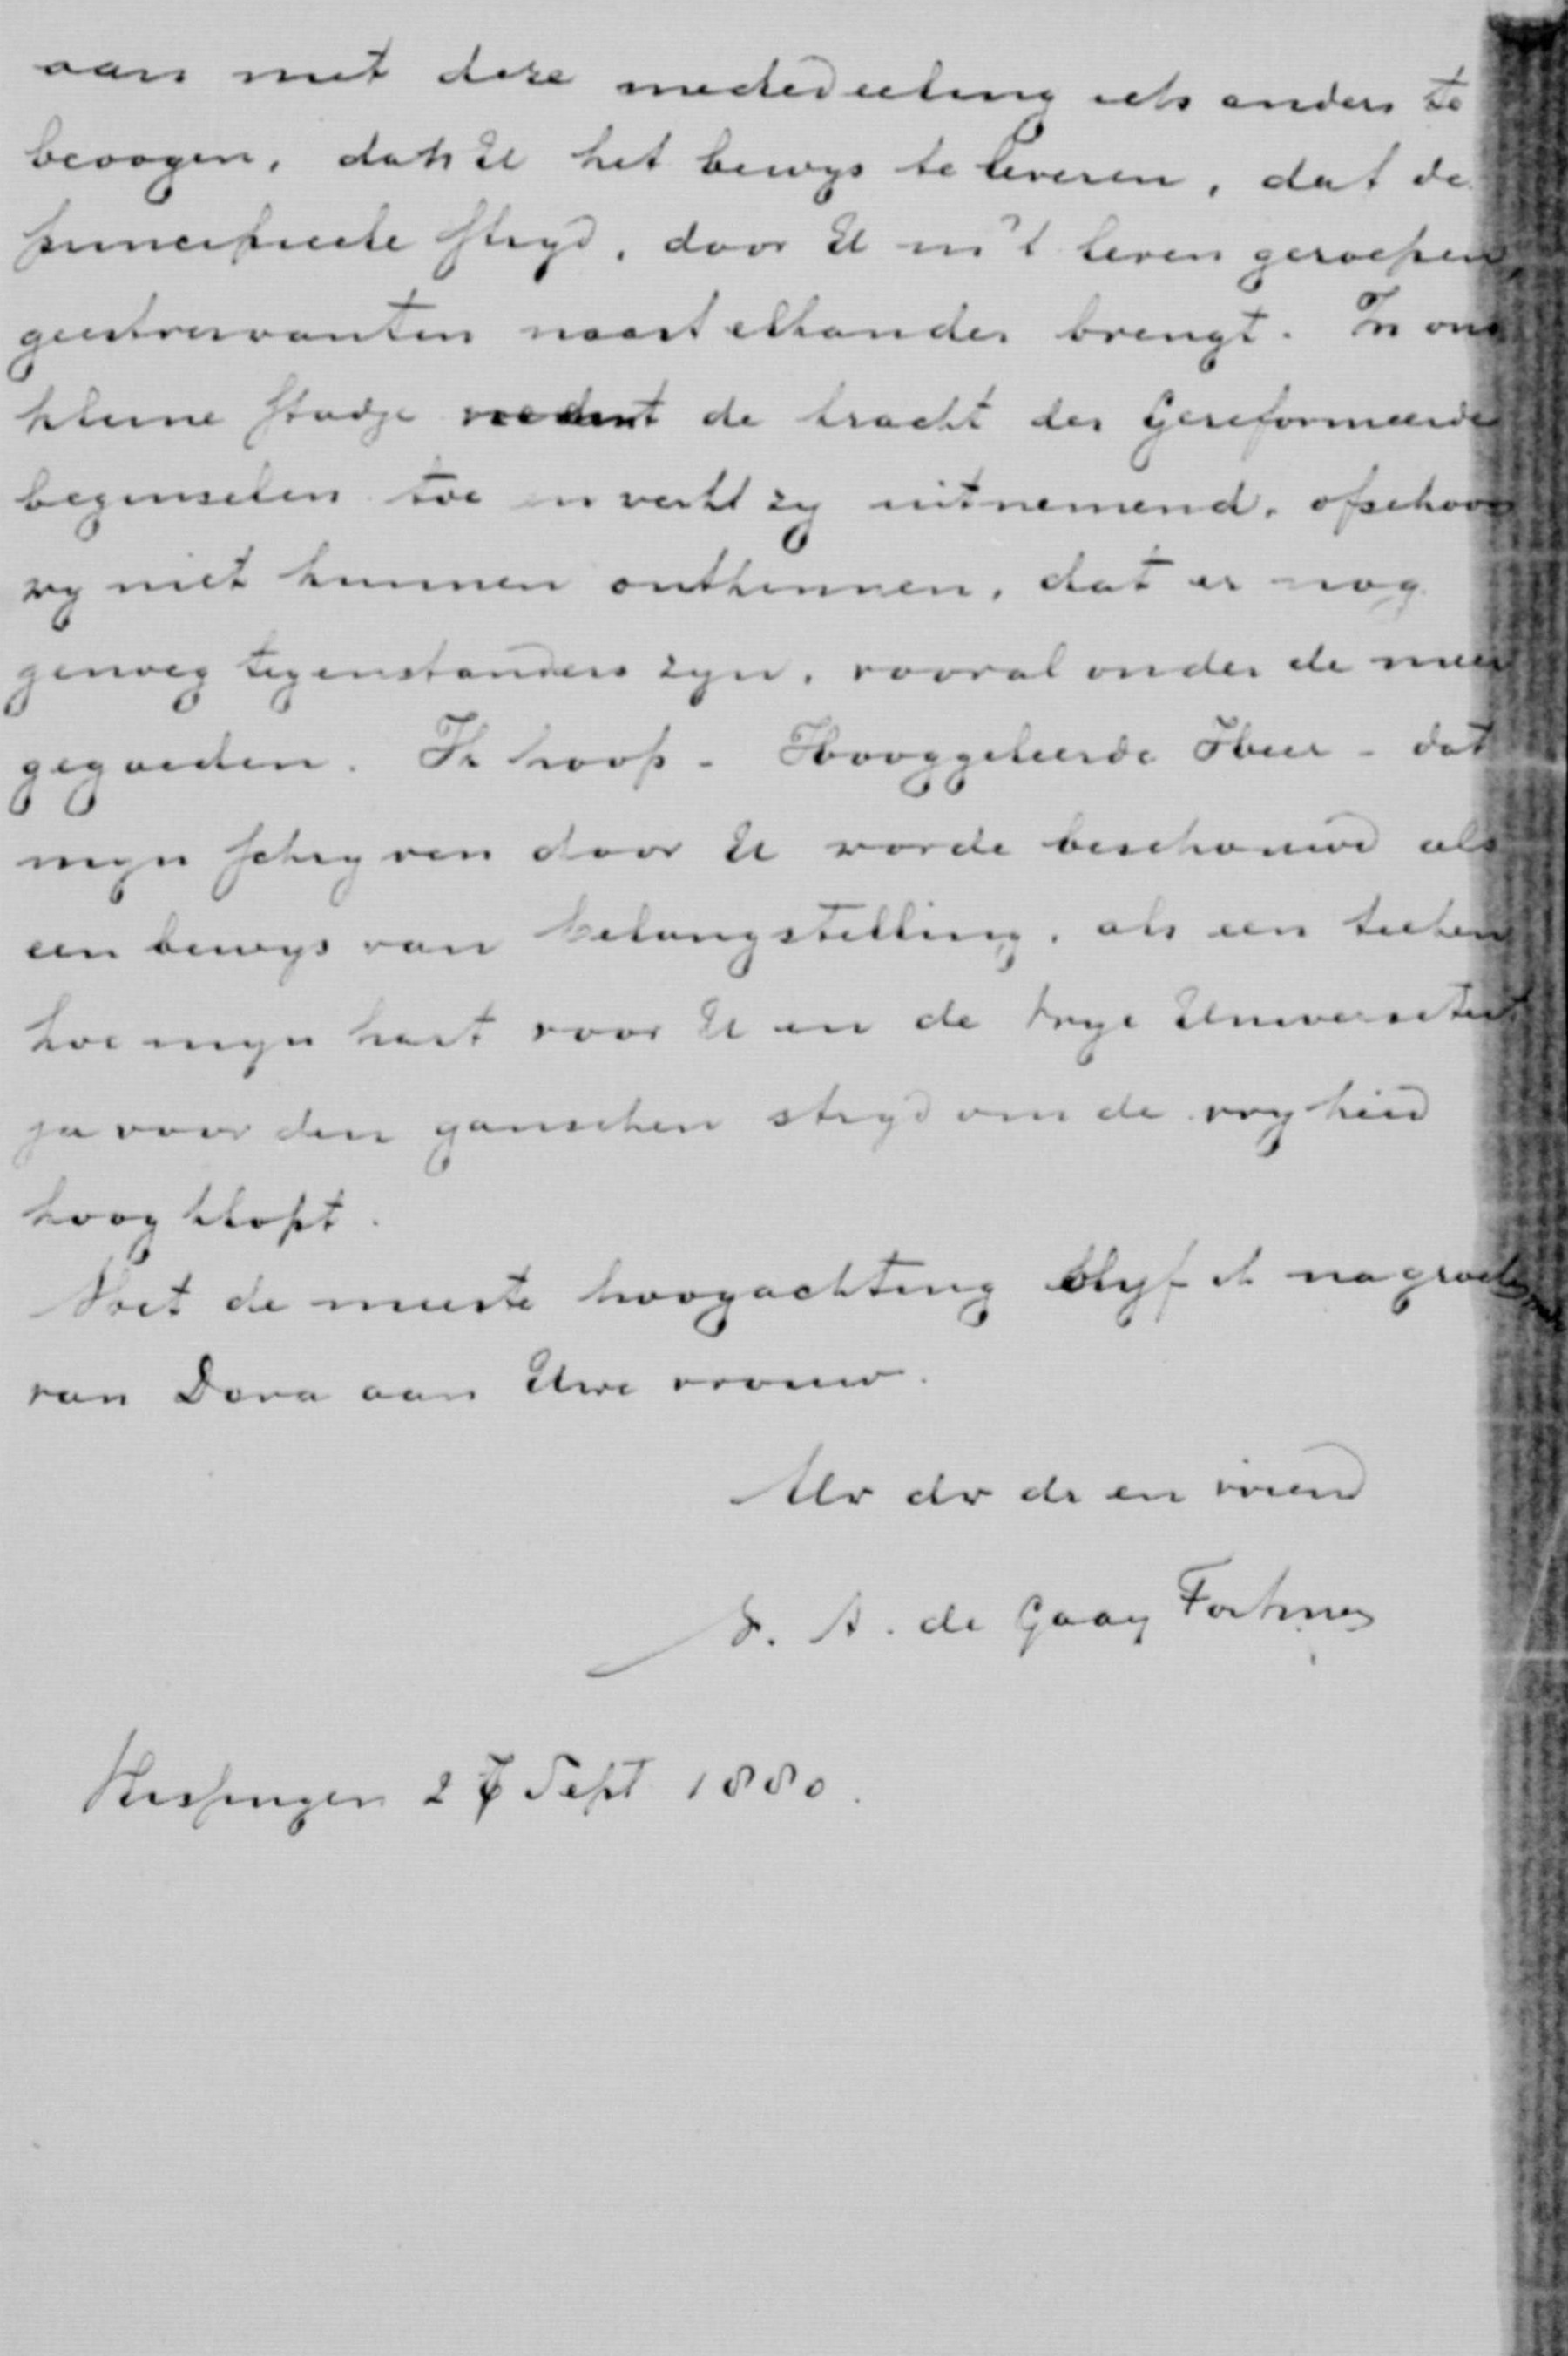 aan met deze mededeeling iets anders te
beoogen, dan U het bewys te leveren, dat de
principieele stryd, door U in 't leven geroepen
geestverwanten naast elkander brengt. In ons
kleine stadje neemt de kracht der Gereformeerde
beginselen toe en werkt zy uitnemend, ofschoon
wy niet kunnen ontkennen, dat er nog
genoeg tegenstanders zyn, vooral onder de meer
gegoeden. Ik hoop - Hooggeleerde Heer - dat
myn schryven door U worde beschouwd als
een bewys van belangstelling, als een teeken
hoe myn hart voor U en de Vrye Universiteit
ja voor den ganschen stryd om de vryheid
hoog klopt.
Met de meeste hoogachting blyf ik na groeten
van Dora aan Uwe vrouw.
Uw dw dr en vriend
A. de Gaay Fortman
27 Sept 1880.